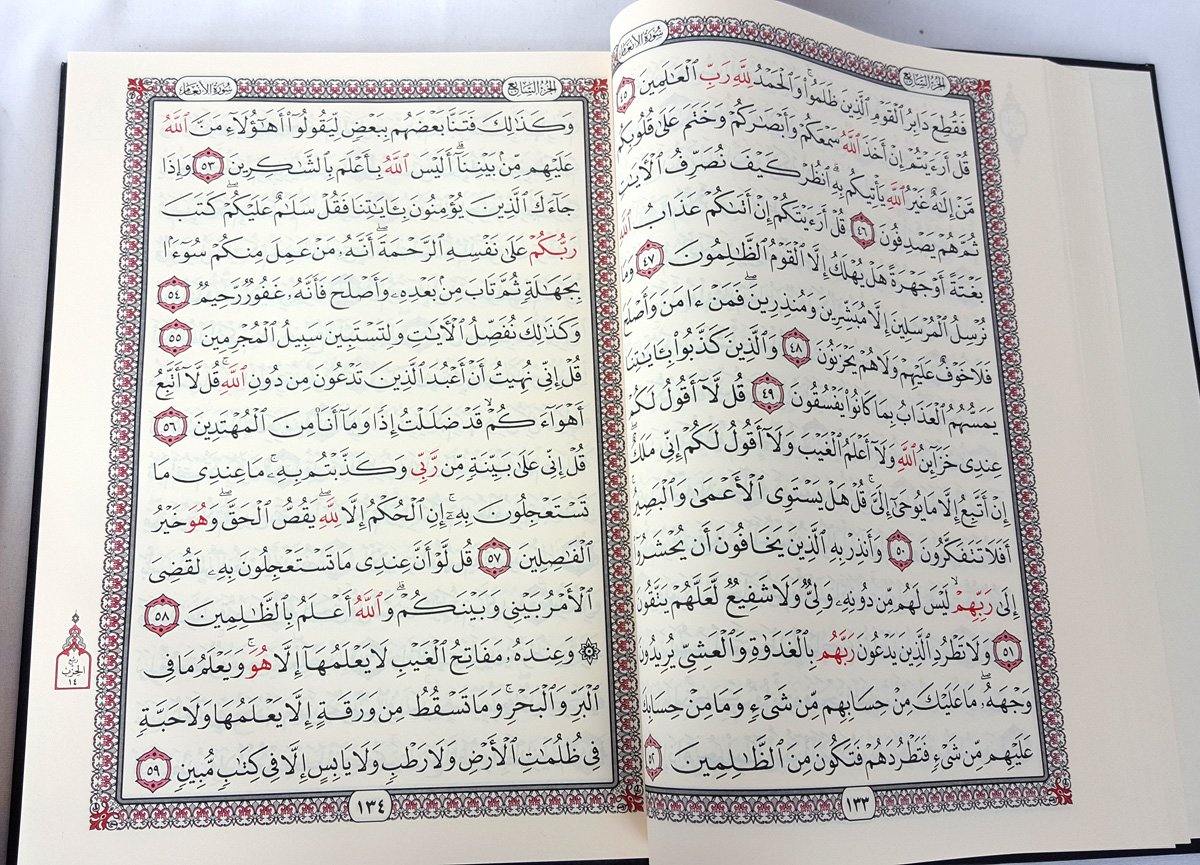 سُورَةُ الأَنْعَام
الجُزْءُ السَّابِع
فَقُطِعَ دَابِرُ ٱلْقَوْمِ ٱلَّذِينَ ظَلَمُوا۟ۚ وَٱلْحَمْدُ لِلَّهِ رَبِّ ٱلْعَـٰلَمِينَ ٤٥
قُلْ أَرَءَيْتُمْ إِنْ أَخَذَ ٱللَّهُ سَمْعَكُمْ وَأَبْصَـٰرَكُمْ وَخَتَمَ عَلَىٰ قُلُوبِكُم
مَّنْ إِلَـٰهٌ غَيْرُ ٱللَّهِ يَأْتِيكُم بِهِۗ ٱنظُرْ كَيْفَ نُصَرِّفُ ٱلْـَٔايَـٰتِ
ثُمَّ هُمْ يَصْدِفُونَ ٤٦ قُلْ أَرَءَيْتَكُمْ إِنْ أَتَىٰكُمْ عَذَابُ ٱللَّهِ
بَغْتَةً أَوْ جَهْرَةً هَلْ يُهْلَكُ إِلَّا ٱلْقَوْمُ ٱلظَّـٰلِمُونَ ٤٧ وَمَا
نُرْسِلُ ٱلْمُرْسَلِينَ إِلَّا مُبَشِّرِينَ وَمُنذِرِينَۖ فَمَنْ ءَامَنَ وَأَصْلَحَ
فَلَا خَوْفٌ عَلَيْهِمْ وَلَا هُمْ يَحْزَنُونَ ٤٨ وَٱلَّذِينَ كَذَّبُوا۟ بِـَٔايَـٰتِنَا
يَمَسُّهُمُ ٱلْعَذَابُ بِمَا كَانُوا۟ يَفْسُقُونَ ٤٩ قُل لَّآ أَقُولُ لَكُمْ
عِندِى خَزَآئِنُ ٱللَّهِ وَلَآ أَعْلَمُ ٱلْغَيْبَ وَلَآ أَقُولُ لَكُمْ إِنِّى مَلَكٌۖ
إِنْ أَتَّبِعُ إِلَّا مَا يُوحَىٰٓ إِلَىَّۚ قُلْ هَلْ يَسْتَوِى ٱلْأَعْمَىٰ وَٱلْبَصِيرُۚ
أَفَلَا تَتَفَكَّرُونَ ٥٠ وَأَنذِرْ بِهِ ٱلَّذِينَ يَخَافُونَ أَن يُحْشَرُوٓا۟
إِلَىٰ رَبِّهِمْۙ لَيْسَ لَهُم مِّن دُونِهِۦ وَلِىٌّ وَلَا شَفِيعٌ لَّعَلَّهُمْ يَتَّقُونَ
٥١ وَلَا تَطْرُدِ ٱلَّذِينَ يَدْعُونَ رَبَّهُم بِٱلْغَدَوٰةِ وَٱلْعَشِىِّ يُرِيدُونَ
وَجْهَهُۥۖ مَا عَلَيْكَ مِنْ حِسَابِهِم مِّن شَىْءٍ وَمَا مِنْ حِسَابِكَ
عَلَيْهِم مِّن شَىْءٍ فَتَطْرُدَهُمْ فَتَكُونَ مِنَ ٱلظَّـٰلِمِينَ ٥٢
١٣٣
سُورَةُ الأَنْعَام
الجُزْءُ السَّابِع
وَكَذَٰلِكَ فَتَنَّا بَعْضَهُم بِبَعْضٍ لِّيَقُولُوٓا۟ أَهَـٰٓؤُلَآءِ مَنَّ ٱللَّهُ
عَلَيْهِم مِّنۢ بَيْنِنَآۗ أَلَيْسَ ٱللَّهُ بِأَعْلَمَ بِٱلشَّـٰكِرِينَ ٥٣ وَإِذَا
جَآءَكَ ٱلَّذِينَ يُؤْمِنُونَ بِـَٔايَـٰتِنَا فَقُلْ سَلَـٰمٌ عَلَيْكُمْۖ كَتَبَ
رَبُّكُمْ عَلَىٰ نَفْسِهِ ٱلرَّحْمَةَۖ أَنَّهُۥ مَنْ عَمِلَ مِنكُمْ سُوٓءًۢا
بِجَهَـٰلَةٍ ثُمَّ تَابَ مِنۢ بَعْدِهِۦ وَأَصْلَحَ فَأَنَّهُۥ غَفُورٌ رَّحِيمٌ ٥٤
وَكَذَٰلِكَ نُفَصِّلُ ٱلْـَٔايَـٰتِ وَلِتَسْتَبِينَ سَبِيلُ ٱلْمُجْرِمِينَ ٥٥
قُلْ إِنِّى نُهِيتُ أَنْ أَعْبُدَ ٱلَّذِينَ تَدْعُونَ مِن دُونِ ٱللَّهِۚ قُل لَّآ أَتَّبِعُ
أَهْوَآءَكُمْۙ قَدْ ضَلَلْتُ إِذًا وَمَآ أَنَا۠ مِنَ ٱلْمُهْتَدِينَ ٥٦
قُلْ إِنِّى عَلَىٰ بَيِّنَةٍ مِّن رَّبِّى وَكَذَّبْتُم بِهِۦۚ مَا عِندِى مَا
تَسْتَعْجِلُونَ بِهِۦٓۚ إِنِ ٱلْحُكْمُ إِلَّا لِلَّهِۖ يَقُصُّ ٱلْحَقَّۖ وَهُوَ خَيْرُ
ٱلْفَـٰصِلِينَ ٥٧ قُل لَّوْ أَنَّ عِندِى مَا تَسْتَعْجِلُونَ بِهِۦ لَقُضِىَ
ٱلْأَمْرُ بَيْنِى وَبَيْنَكُمْۗ وَٱللَّهُ أَعْلَمُ بِٱلظَّـٰلِمِينَ ٥٨
۞ وَعِندَهُۥ مَفَاتِحُ ٱلْغَيْبِ لَا يَعْلَمُهَآ إِلَّا هُوَۚ وَيَعْلَمُ مَا فِى
ٱلْبَرِّ وَٱلْبَحْرِۚ وَمَا تَسْقُطُ مِن وَرَقَةٍ إِلَّا يَعْلَمُهَا وَلَا حَبَّةٍ
فِى ظُلُمَـٰتِ ٱلْأَرْضِ وَلَا رَطْبٍ وَلَا يَابِسٍ إِلَّا فِى كِتَـٰبٍ مُّبِينٍ ٥٩
١٣٤
الحزب
١٤